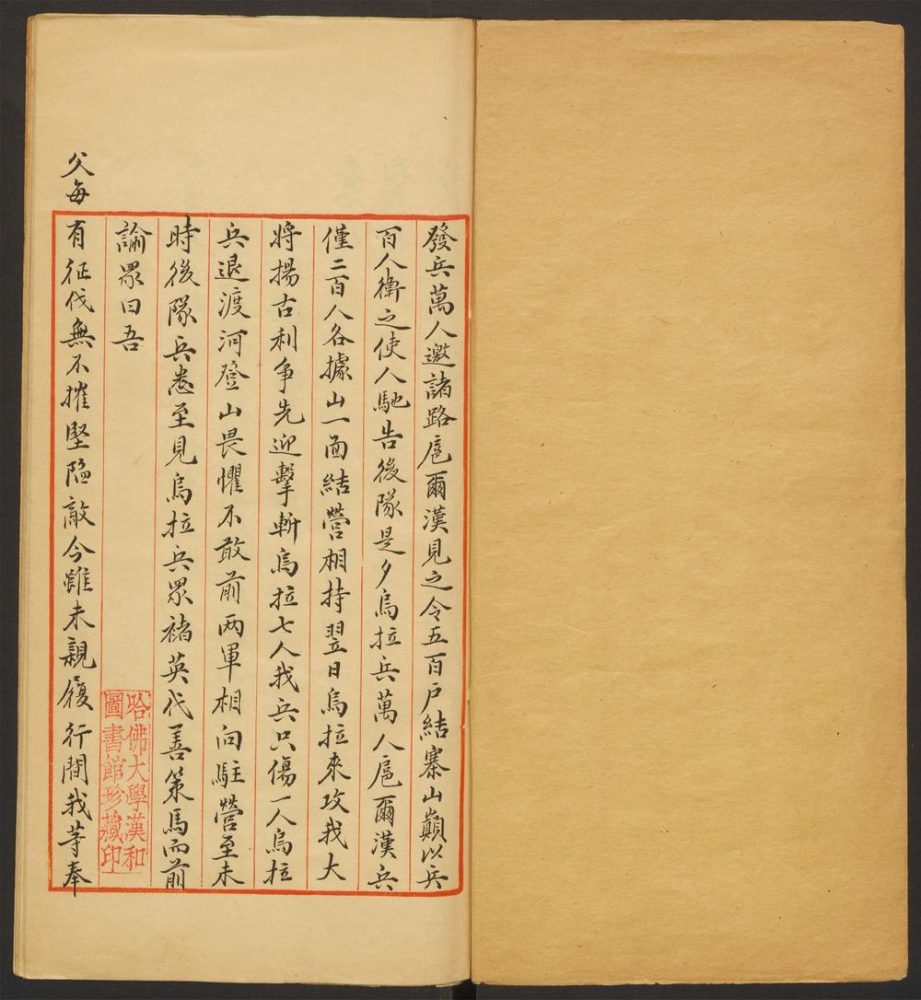 發兵萬人邀諸路扈爾漢見之令五百戶結寨山巔以兵
百人衛之使人馳告後隊是夕烏拉兵萬人扈爾漢兵
僅二百人各據山一面結營相持翌日烏拉來攻我大
將揚古利爭先迎擊斬烏拉七人我兵只傷一人烏拉
兵退渡河登山畏懼不敢前两軍相向駐營至未
時後隊兵悉至見烏拉兵眾褚英代善策馬而前
諭眾曰吾
父每有征伐無不摧堅陷敵今雖未親履行間我等奉
哈佛大學漢和
圖書館珍藏印